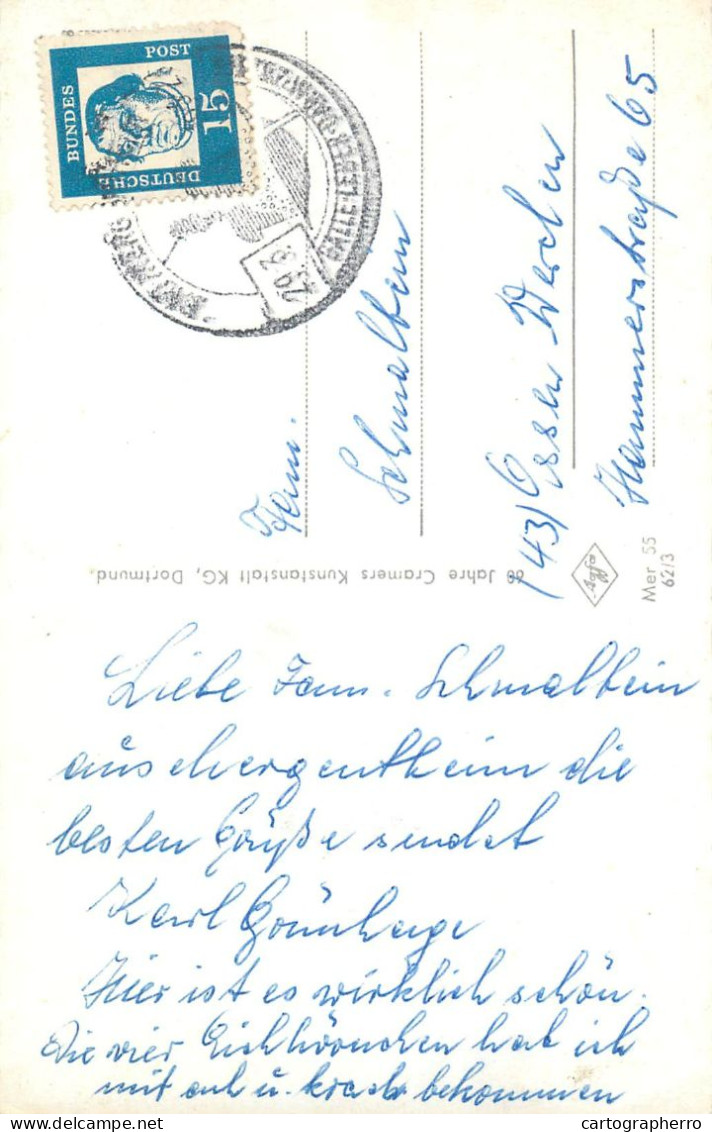 DEUTSCHE
BUNDES
POST
15
29.8.
Fam.
Schmalbein
(43) Essen Werden
Hammerstraße 65
60 Jahre Cramers Kunstanstalt KG, Dortmund.
Agfa
Mer 55
62/3
Liebe Fam. Schmalbein
aus Mergentheim die
besten Grüße sendet
Karl Grünhage
Hier ist es wirklich schön.
Die vier Eichhörnchen hab ich
mit u. bekommen
cartographerro